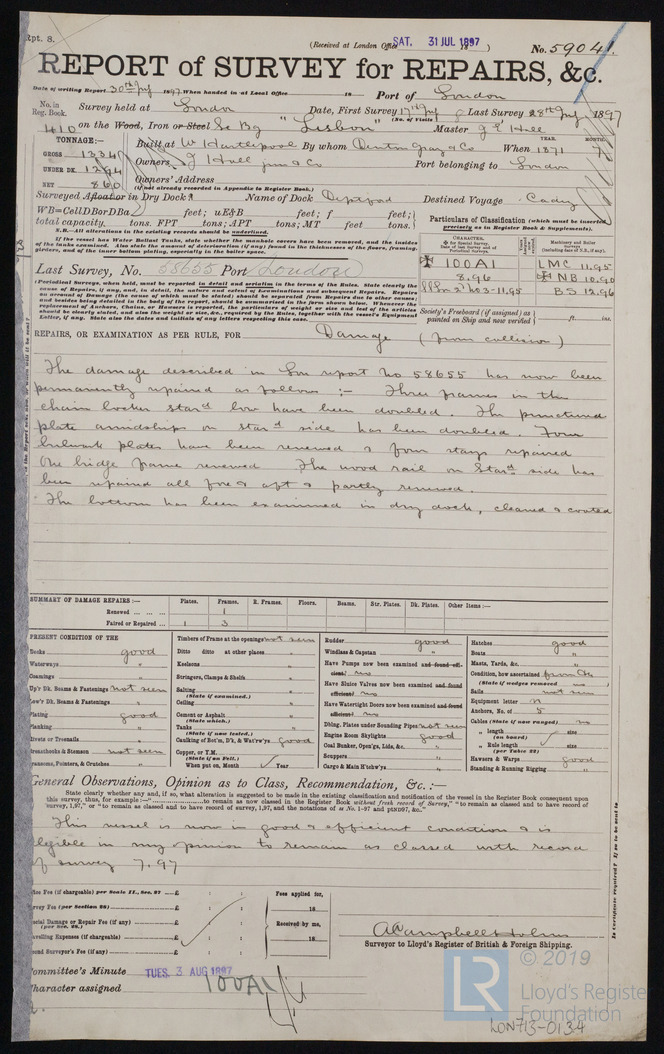 Rpt. 8.
(Received at London Office SAT. 31 JUL 1897 18 )
No. 59041.
REPORT of SURVEY for REPAIRS, &c.
Date of writing Report 30th July 1897 When handed in at Local Office 18 Port of London
No. in Reg. Book. Survey held at London Date, First Survey 17th July Last Survey 28th July 1897
(No. of Visits )
410 on the Wood, Iron or Steel Sc Bg "Lisbon" Master J E Hall
TONNAGE:— Built at W Hartlepool By whom Denton Gray & Co When 1871 7
YEAR. MONTH.
GROSS 1334
Owners J Hall jun & Co Port belonging to London
UNDER DK. 1294
Owners' Address
NET 860 (if not already recorded in Appendix to Register Book.)
Surveyed Afloat or in Dry Dock? Name of Dock Deptford Destined Voyage Cadiz
WB=CellDBorDBa feet; uE&B feet; f feet;
total capacity, tons. FPT tons; APT tons; MT feet tons.
N.B.—All alterations in the existing records should be underlined.
If the vessel has Water Ballast Tanks, state whether the manhole covers have been removed, and the insides
of the tanks examined. Also state the amount of deterioration (if any) found in the thicknesses of the floors, framing,
girders, and of the inner bottom plating, especially in the boiler space.
Particulars of Classification (which must be inserted
precisely as in Register Book & Supplements).
CHARACTER.
Machinery and Boiler Surveys
100A1 LMC 11.95
8.96 NB 10.90
2 No3-11.95 BS 12.96
Last Survey, No. 58655 Port London
(Periodical Surveys, when held, must be reported in detail and seriatim in the terms of the Rules. State clearly the
cause of Repairs, if any, and, in detail, the nature and extent of Examinations and subsequent Repairs. Repairs
on account of Damage (the cause of which must be stated) should be separated from Repairs due to other causes;
and besides being detailed in the body of the report, should be summarised in the form shewn below. Whenever the
replacement of Anchors, Chains, or Hawsers is reported, the particulars of weight or size and test of the articles
should be clearly stated, and also the weight or size, &c., required by the Rules, together with the vessel's Equipment
Letter, if any. State also the dates and initials of any letters respecting this case.
Society's Freeboard (if assigned) as
painted on Ship and now verified ft. ins.
REPAIRS, OR EXAMINATION AS PER RULE, FOR Damage (from collision)
The damage described in Lon report no 58655 has now been
permanently repaired as follows :— Three frames in the
chain locker starbd bow have been doubled. The punctured
plate amidships on starbd side has been doubled. Four
bulwark plates have been renewed & four stays repaired
One bridge frame renewed The wood rail on Starbd side has
been repaired all fore & aft & partly renewed.
The bottom has been examined in dry dock, cleaned & coated
SUMMARY OF DAMAGE REPAIRS:— Plates. Frames. R. Frames. Floors. Beams. Str. Plates. Dk. Plates. Other Items:—
Renewed ... ... ... 1
Faired or Repaired ... 1 3
PRESENT CONDITION OF THE
Decks good
Waterways "
Coamings "
Up'r Dk. Beams & Fastenings not seen
Low'r Dk. Beams & Fastenings "
Plating good
Planking "
Rivets or Treenails "
Breasthooks & Stemson not seen
Transoms, Pointers, & Crutches "
Timbers of Frame at the openings not seen
Ditto ditto at other places "
Keelsons "
Stringers, Clamps & Shelfs "
Salting (State if examined.) "
Ceiling "
Cement or Asphalt (State which.) "
Tanks (State if now tested.) "
Caulking of Bot'm, D'k, & Wat'rw'ys good
Copper, or Y.M. (State if on Felt.)
When put on, Month Year
Rudder good
Windlass & Capstan "
Have Pumps now been examined and found efficient? no
Have Sluice Valves now been examined and found efficient? no
Have Watertight Doors now been examined and found efficient? no
Dblng. Plates under Sounding Pipes not seen
Engine Room Skylights good
Coal Bunker, Open'gs, Lids, &c. "
Scuppers "
Cargo & Main H'tchw'ys "
Hatches good
Boats "
Masts, Yards, &c. "
Condition, how ascertained from Dk
(State if wedges removed no )
Sails not seen
Equipment letter n
Anchors, No. of 5
Cables (State if now ranged) no
" length (on board) size
" Rule length (per Table 22) size
Hawsers & Warps good
Standing & Running Rigging "
General Observations, Opinion as to Class, Recommendation, &c. :—
State clearly whether any, and if so, what alteration is suggested to be made in the existing classification and notification of the vessel in the Register Book consequent upon
this survey, thus, for example:—" to remain as now classed in the Register Book without fresh record of Survey," "to remain as classed and to have record of
survey, 1,97," or "to remain as classed and to have record of survey, 1,97, and the notations of ss No. 1-97 and ptND97, &c."
This vessel is now in good & efficient condition & is
eligible in my opinion to remain as classed with record
of survey 7.97
Fee (if chargeable) per Scale II., Sec. 27 £ : :
Survey Fee (per Section 28) £ : :
Special Damage or Repair Fee (if any) £ : :
(per Sec. 28.)
Travelling Expenses (if chargeable) £ : :
Second Surveyor's Fee (if any) £ : :
Fees applied for,
18
Received by me,
18
A Campbell Holms
Surveyor to Lloyd's Register of British & Foreign Shipping.
Committee's Minute TUES. 3 AUG 1897
Character assigned 100A1
© 2019
LR
Lloyd's Register
Foundation
LON713-0134